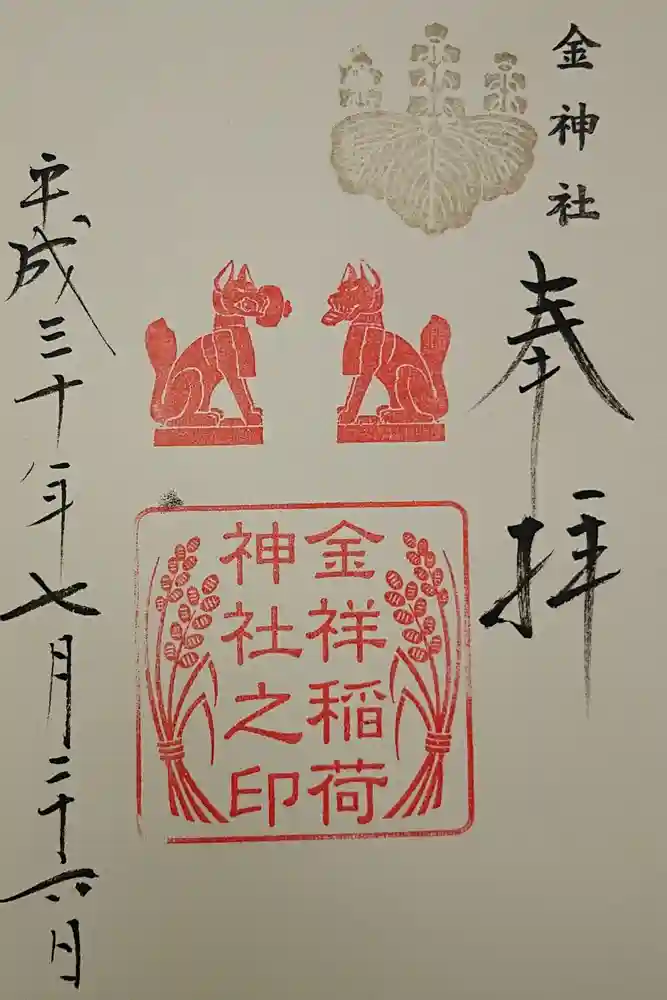 金神社
奉拝
金祥稲荷
神社之印
平成三十年七月二十六日